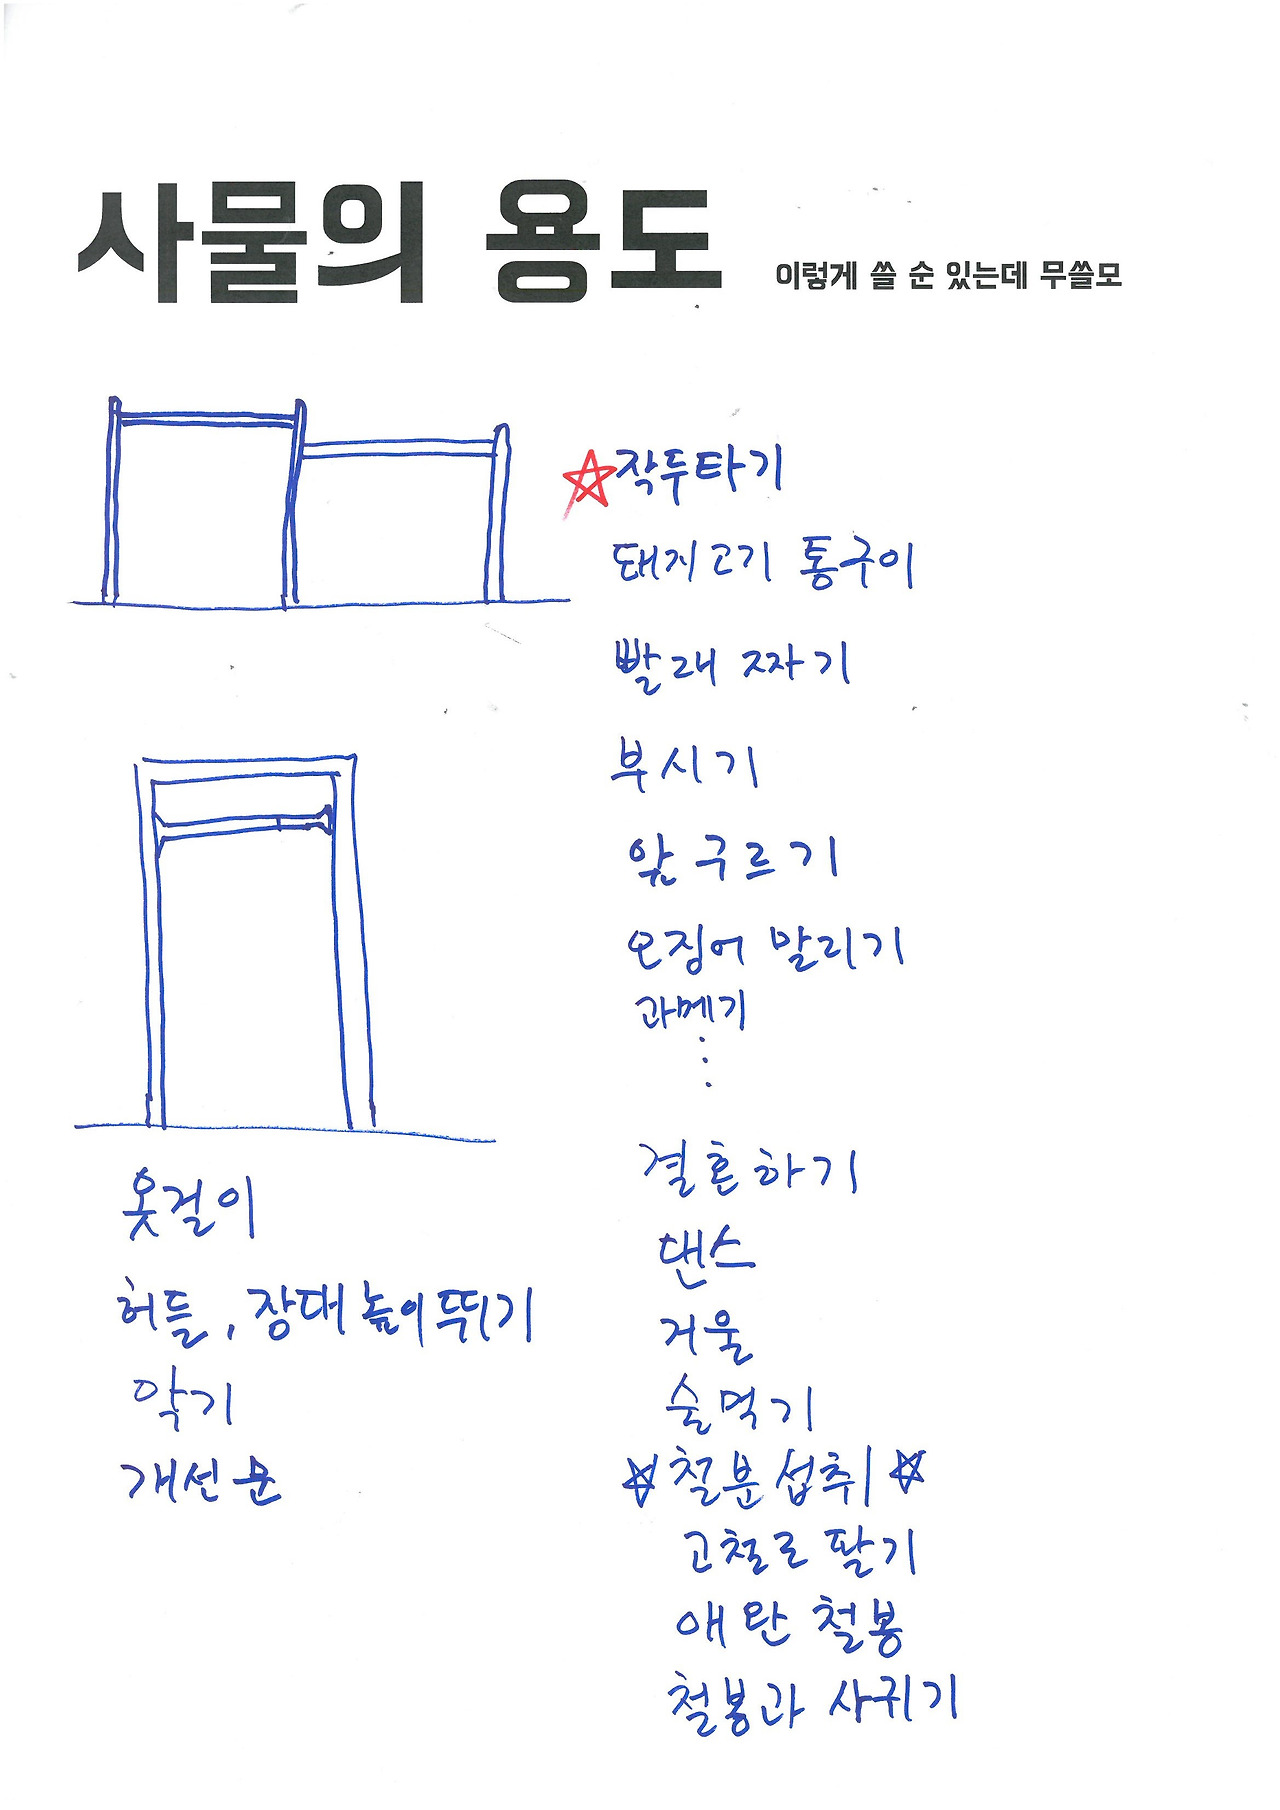 사물의 용도 이렇게 쓸 순 있는데 무쓸모
작두타기
돼지고기 통구이
빨래 짜기
부시기
앞구르기
오징어 말리기
과메기
결혼하기
댄스
거울
술먹기
철분섭취
고철로 팔기
애완 철봉
철봉과 사귀기
옷걸이
허들, 장대높이뛰기
악기
개선문